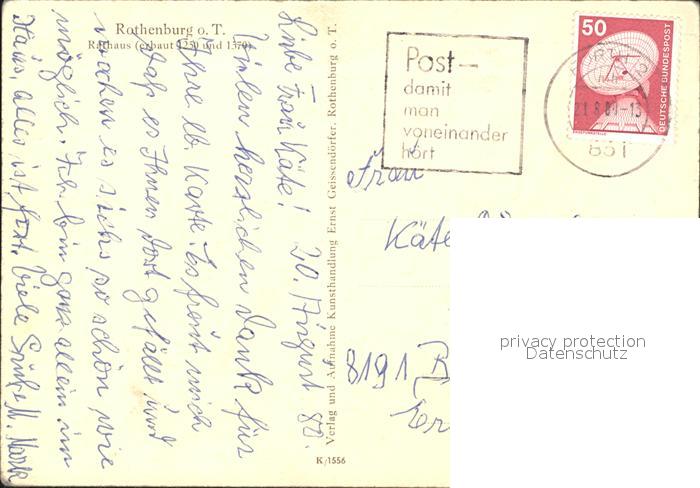 Rothenburg o. T.
Rathaus (erbaut 1250 und 1370)
Liebe Frau Käte! 20. August 80.
Vielen herzlichen Dank für
Ihre lb Karte. Es freut mich
daß es Ihnen dort gefällt und
machen es sichs so schön wie
möglich. Ich bin ganz allein im
Haus, alles ist fort. Viele Grüße M.
Verlag und Aufnahme Kunsthandlung Ernst Geissendörfer, Rothenburg o. T.
K/1556
Post—
damit
man
voneinander
hört
50
DEUTSCHE BUNDESPOST
21.8.80-13
851
Frau
Käte
8191
privacy protection
Datenschutz